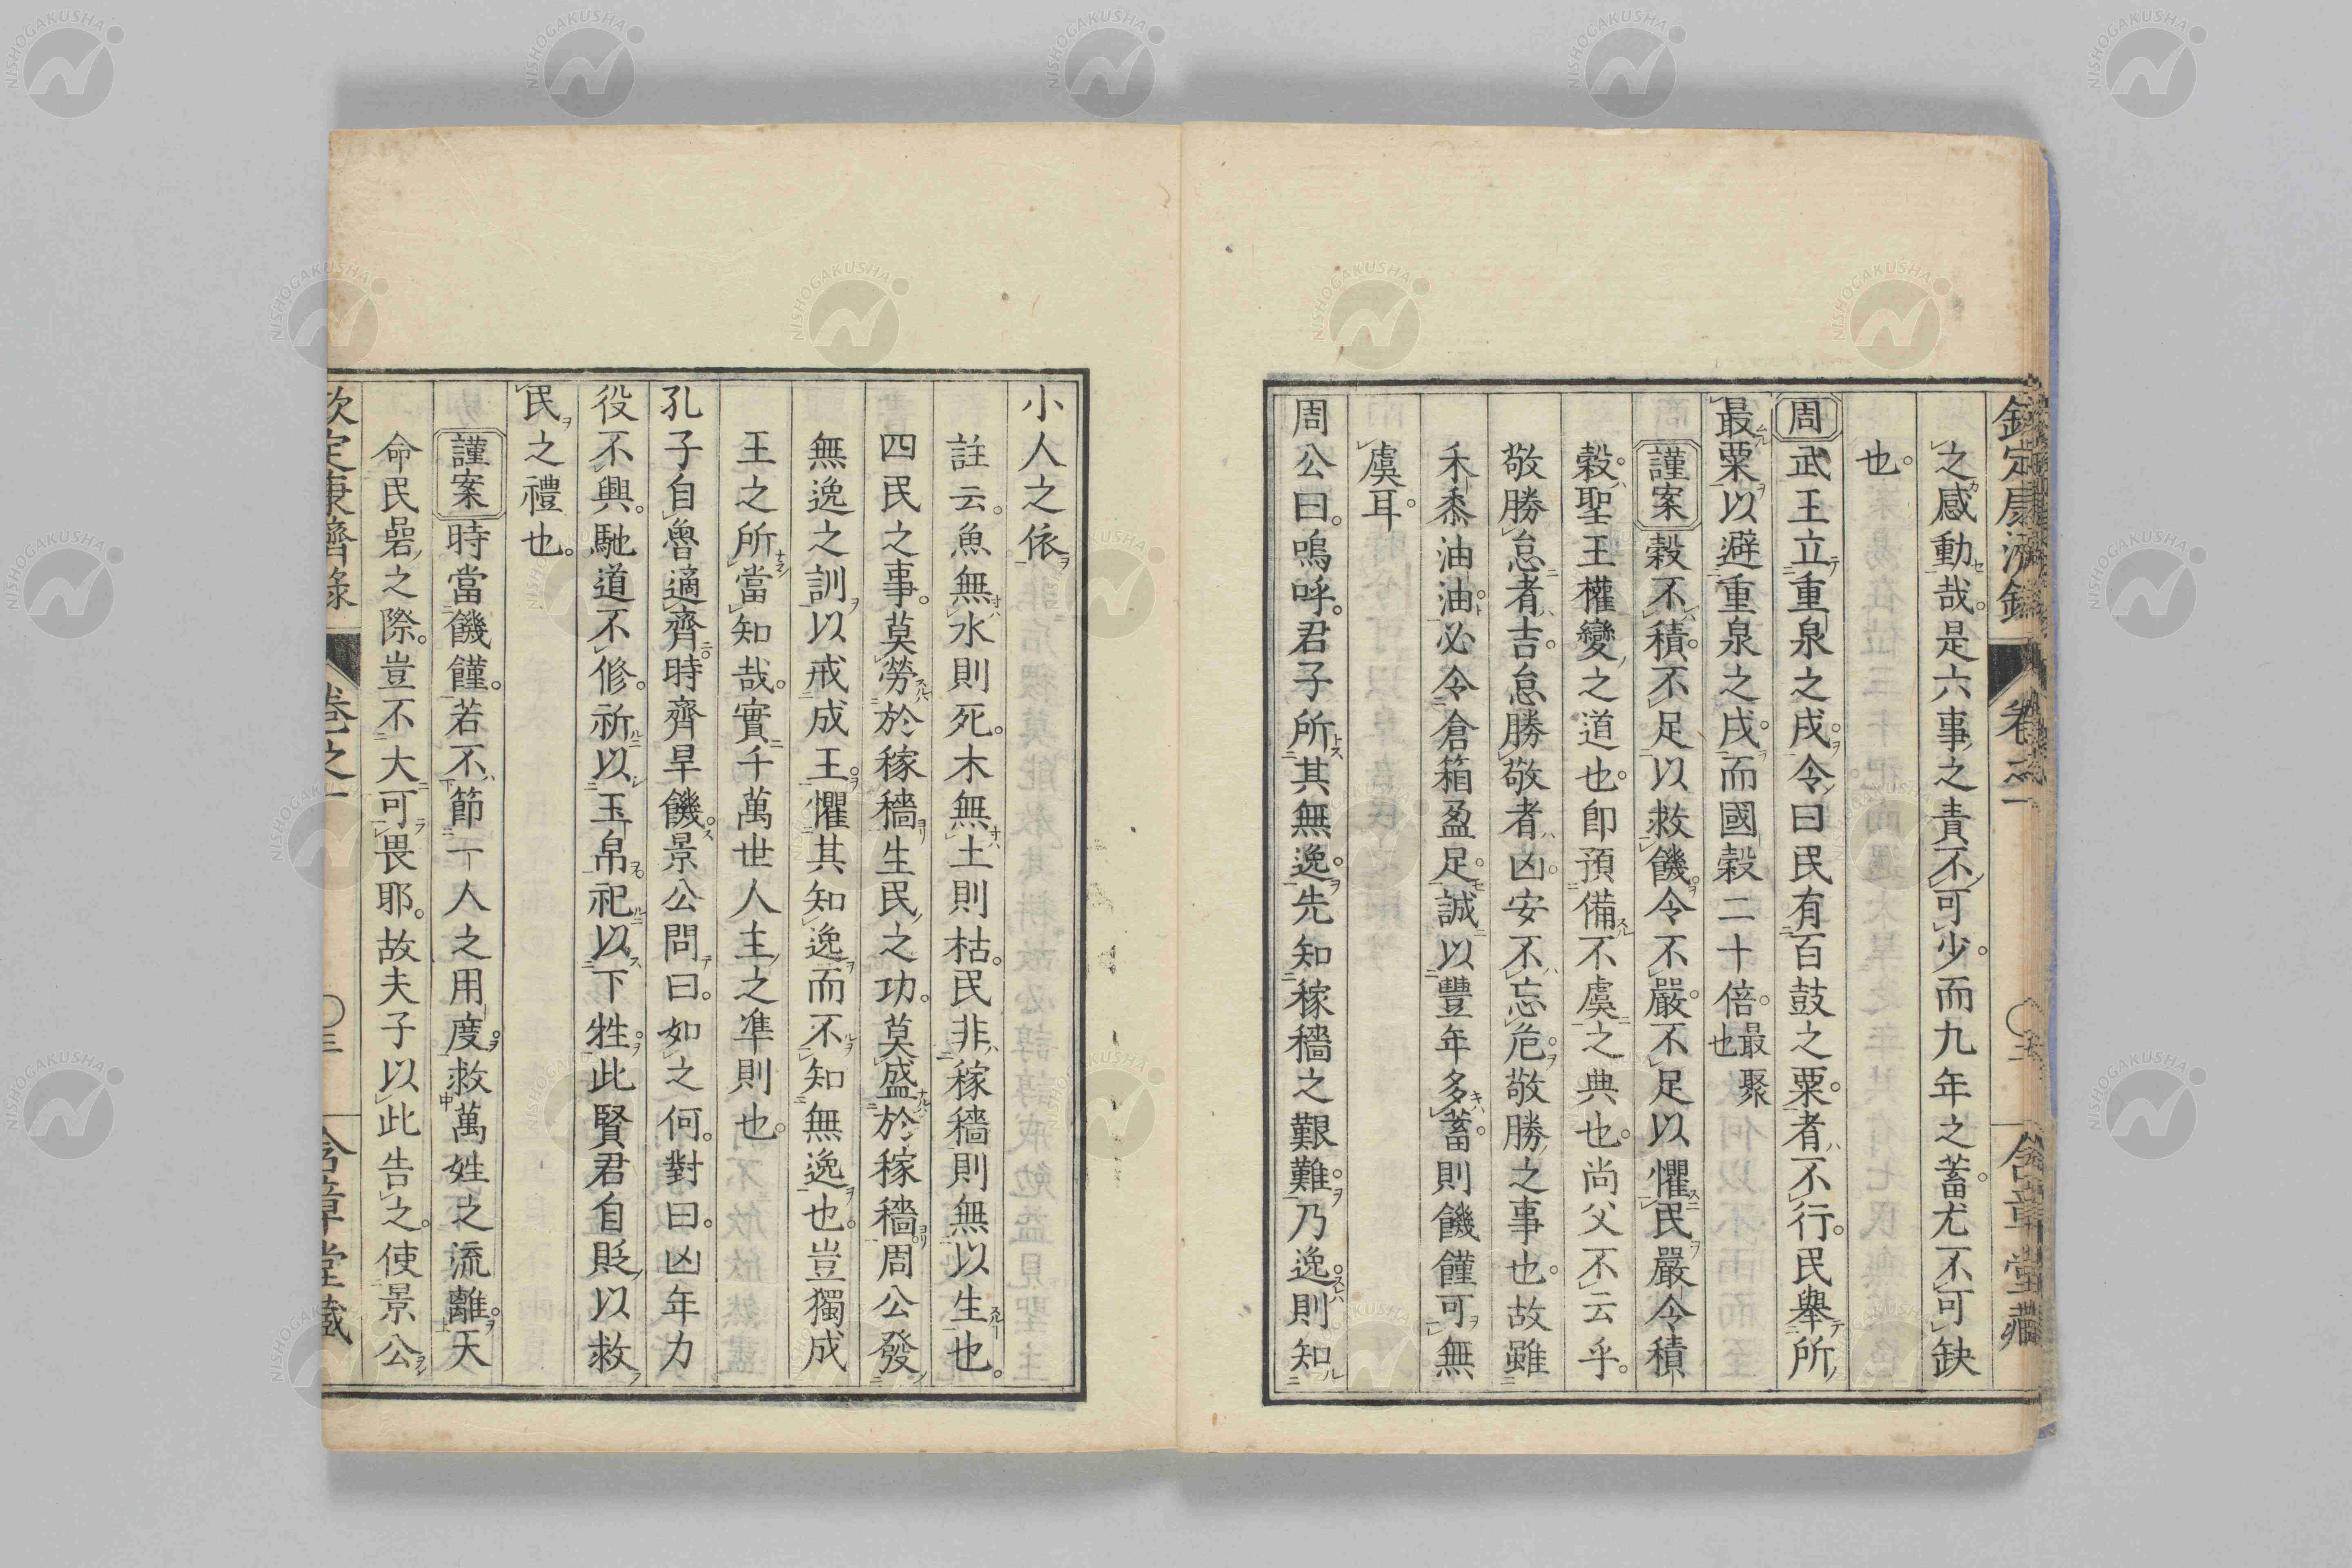 欽定康濟錄 卷之一 〇二 含章堂藏
之感動哉。是六事之責不可少。而九年之蓄。尤不可缺
也。
周武王立重泉之戍。令曰民有百鼓之粟。者不行。民舉所
最粟以避重泉之戍。而國穀二十倍。最聚也
謹案穀不積。不足以救饑。令不嚴。不足以懼民嚴令積
穀。聖王權變之道也。卽預備不虞之典也。尚父不云乎。
敬勝怠者吉。怠勝敬者凶。安不忘危。敬勝之事也。故雖
禾黍油油。必令倉箱盈足。誠以豐年多蓄。則饑饉可無
虞耳。
周公曰。嗚呼。君子所其無逸。先知稼穡之艱難。乃逸。則知
小人之依
註云。魚無水則死。木無土則枯。民非稼穡則無以生也。
四民之事。莫勞於稼穡生民之功。莫盛於稼穡。周公發
無逸之訓以戒成王。懼其知逸而不知無逸也。豈獨成
王之所當知哉。實千萬世人主之準則也。
孔子自魯適齊。時齊旱饑。景公問曰。如之何。對曰。凶年力
役不興。馳道不修。祈以玉帛祀以下牲。此賢君自貶以救
民之禮也。
謹案時當饑饉。若不節一人之用度。救萬姓之流離。天
命民嵒之際。豈不大可畏耶。故夫子以此告之。使景公
欽定康濟錄 卷之一 〇三 含章堂藏